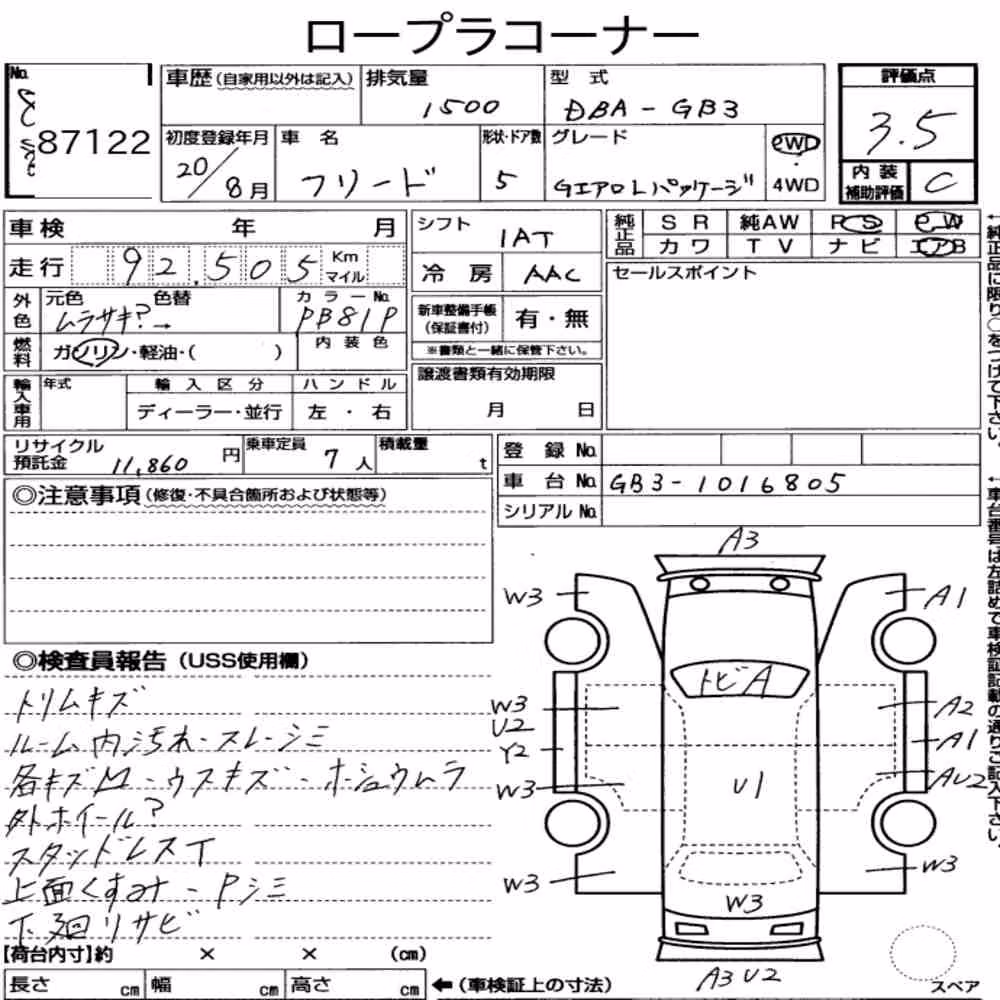 ロープラコーナー
No. 87122
車歴 (自家用以外は記入) 排気量 1500 型式 DBA-GB3
初度登録年月 20/8月 車名 フリード 形状・ドア数 5 グレード GエアロLパッケージ 2WD・4WD
評価点 3.5
内装補助評価 C
車検 年 月
走行 92,505 Km マイル
外色 元色 ムラサキ?→ 色替 カラーNo. PB81P
燃料 ガソリン・軽油・( ) 内装色
輸入車用 年式 輸入区分 ディーラー・並行 ハンドル 左・右
シフト IAT
冷房 AAC
新車整備手帳(保証書付) 有・無
※書類と一緒に保管下さい。
譲渡書類有効期限
月 日
純正品 SR 純AW PS PW
カワ TV ナビ エアB
セールスポイント
←純正品に限り○をつけて下さい。
リサイクル預託金 11,860円 乗車定員 7人 積載量 t
登録No.
車台No. GB3-1016805
シリアルNo.
←車台番号は左詰めで車検証記載の通りご記入下さい。
◎注意事項(修復・不具合箇所および状態等)
◎検査員報告(USS使用欄)
トリムキズ
ルーム内汚れ・スレ-シミ
各キズM-ウスキズ-ホシュウムラ
外ホイール?
スタッドレスT
上面くすみ-Pシミ
下廻りサビ
A3
W3 A1
トビA
W3 A2
U2
Y2 A1
W3 U1 AU2
W3 W3
W3
A3 U2
スペア
【荷台内寸】約 × × (cm)
長さ cm 幅 cm 高さ cm ←(車検証上の寸法)